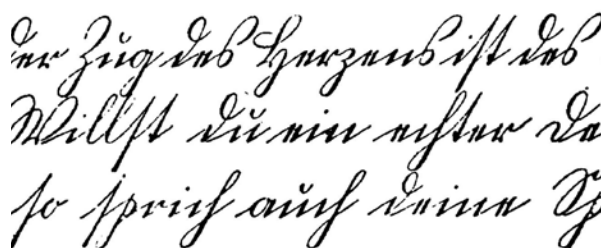 der Zug des Herzens ist des
Willst du ein echter De
so sprich auch deine Sp